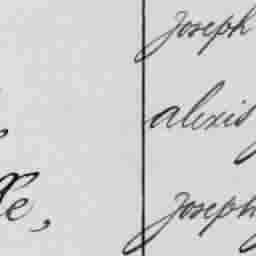 Joseph
alexis
Joseph